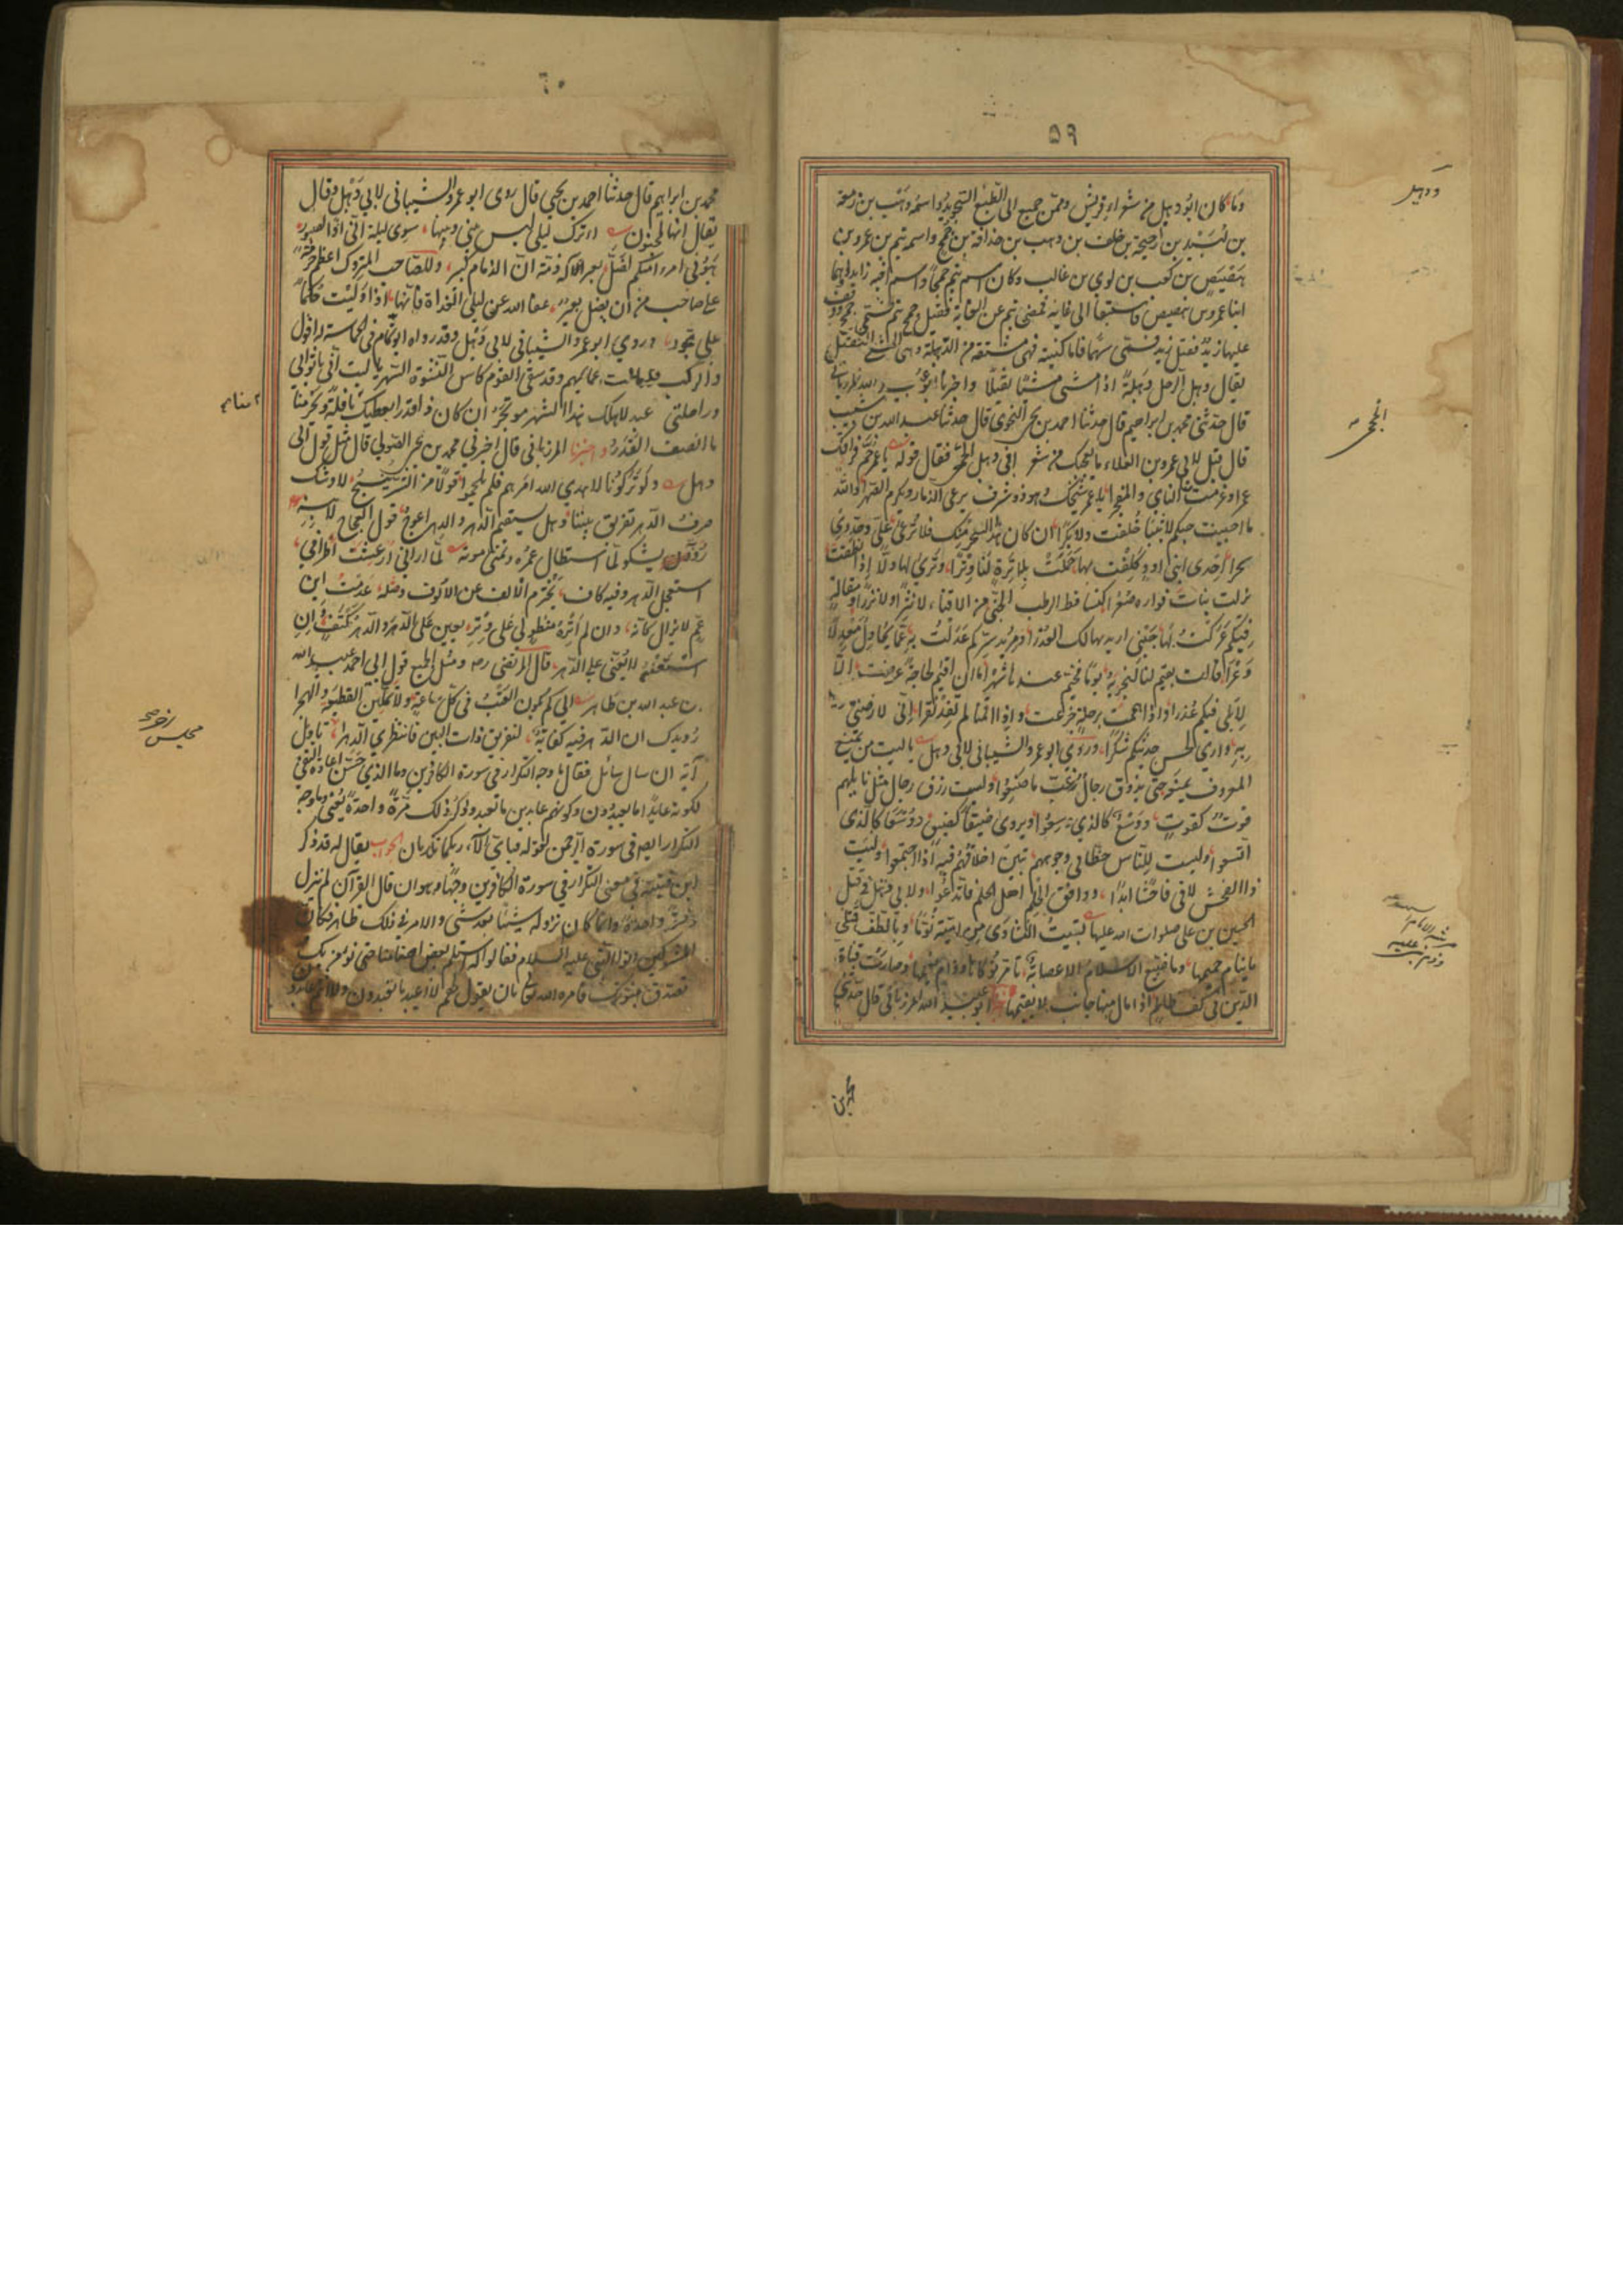 ٥٩
وما كان ابو دهبل من شعراء قريش وممن جمع الى الطبع التجويد واسمه وهب بن زمعة
بن اسيد بن احيحة بن خلف بن وهب بن حذافة بن جمح واسمه تيم بن عمرو بن
هصيص بن كعب بن لوي بن غالب وكان اسم تيم جمحا واسم اخيه زيدا وهما
ابنا عمرو بن هصيص فاستبقا الى غاية فمضى تيم عن الغاية فقيل جمح تيم فسمي جمح ووقف
عليها زيد فقيل زيد فسمى سهما فاما كنيته فهى مشتقة من الدهبلة وهى المشي الثقيل
يقال دهبل الرجل دهبلة اذا مشى مشيا ثقيلا واخبرنا ابو عبيد الله المرزباني
قال حدثنى محمد بن ابراهيم قال حدثنا احمد بن يحيى النحوى قال حدثنا عبد الله بن شبيب
قال قيل لابي عمرو بن العلاء ما يعجبك من شعر ابى دهبل الجمحى فقال قوله يا عمر حم فراقكم
عمرا وعزمت منا النأي والهجرا يا عمر شيخك وهو ذو شرف يرعى الذمار ويكرم الصهرا والله
ما احببت حبكم لا ثيبا خلقت ولا بكرا ان كان هذا السحر منك فلا ترعي علي وجددي
سحرا احدى ابني اود كلفت بها حملت بلا ترة لنا وترا وترى لها دلا اذا نطقت
تركت بنات فواده صعرا كتساقط الرطب الجنى من الاقناء لا نثرا ولا نزرا ومقالة
فيكم عركت بها جنبي اريد بها لك العذرا ومريد سركم عدلت به عما يحاول معدلا
وعرا قالت يقيم لنا لنجزيه يوما فخيم عندها شهرا ما ان اقيم لحاجة عرضت الا
لابلى فيكم عذرا واذا هممت برحلة جزعت واذا اقمنا لم تفد نقرا اني لارضى ما رضيت
به وارى لحسن حديثكم شكرا وروى ابو عمرو الشيباني لابي دهبل يا ليت من يمنع
المعروف يمنعه حتى يذوق رجال غب ما صنعوا وليت رزق رجال مثل نايلهم
قوت كقوت ووسع كالذي وسعوا ويروى ضيقا كضيق ووسعا كالذى
اتسعوا وليت للناس حظا في وجوههم تبين اخلاقهم فيه اذا اجتمعوا وليت
ذا الفحش لاقى فاحشا ابدا ووافق الحلم اهل الحلم فاتدعوا ولابي دهبل في قتل
الحسين بن علي صلوات الله عليهما تبيت السكارى من امية نوما وبالطف قتلى
ما ينام حميمها وما ضيع الاسلام الا عصابة تأمر نوكاها ودام نعيمها وصارت قناة
الدين في كف ظالم اذا مال منها جانب لا يقيمها اخبرنا ابو عبيد الله المرزباني قال حدثني
محمد بن
ودهبل
الجمحى
٦٠
محمد بن ابراهيم قال حدثنا احمد بن يحيى قال روى ابو عمرو الشيباني لابي دهبل وقال
يقال انها لمجنون أأترك ليلى ليس بيني وبينها سوى ليلة اني اذا لصبور
هبوني امرء منكم اضل بعيره له ذمة ان الذمام كبير وللصاحب المتروك اعظم حرمة
على صاحب من ان يضل بعير عفا الله عن ليلى الغداة فانها اذا وليت حكما
علي تجور وروى ابو عمرو الشيباني لابي دهبل وقد رواه ابو تمام في الحماسة له اقول
والركب قد مالت عمايمهم وقد سقى القوم كاس النشوة السهر يا ليت اني باثوابي
وراحلتي عبد لاهلك هذا الشهر موتجر ان كان ذا قدرا يعطيك نافلة ويحرمنا
ما انصف القدر واخبرنا المرزباني قال اخبرني محمد بن يحيى الصولي قال مثل قول ابى
دهبل ولو تركونا لا هدى الله امرهم فلم يلحموا قولا من الشر ينسج لاوشك
صرف الدهر تفريق بيننا وهل يستقيم الدهر والدهر اعوج قول العجاج لابنه
رؤبة يشكو لما استطال عمره وتمنى موته لما رآني ارعشت اطرافي
استعجل الدهر وفيه كاف يخترم الالف عن الالاف
قال المرتضى ره ومثل الجميع قول ابي احمد عبيد الله
بن عبد الله بن طاهر الى كم يكون العتب في كل ساعة ولا تملين القطيعة والهجرا
رويدك ان الدهر فيه كفاية لتفريق ذات البين فانتظري الدهرا تاويل
آية ان سال سائل فقال ما وجه التكرار في سورة الكافرين وما الذي حسن اعادة النفي
لكونه عابدا ما يعبدون وكونهم عابدين ما يعبد وذكر ذلك مرة واحدة يغني وما وجه
التكرار ايضا في سورة الرحمن لقوله فباي آلاء ربكما تكذبان الجواب يقال له قد ذكر
ابن قتيبة في معنى التكرار في سورة الكافرين وجها وهو ان قال القرآن لم ينزل
دفعة واحدة وانما كان نزوله شيئا بعد شئ والامر في ذلك ظاهر فكان
المشركين اتوا النبي عليه السلام فقالوا له استلم بعض اصنامنا حتى نؤمن بك
ونصدق بنبوتك فامره الله تعالى بان يقول لهم لا اعبد ما تعبدون ولا انتم عابدون
مجلس اخر